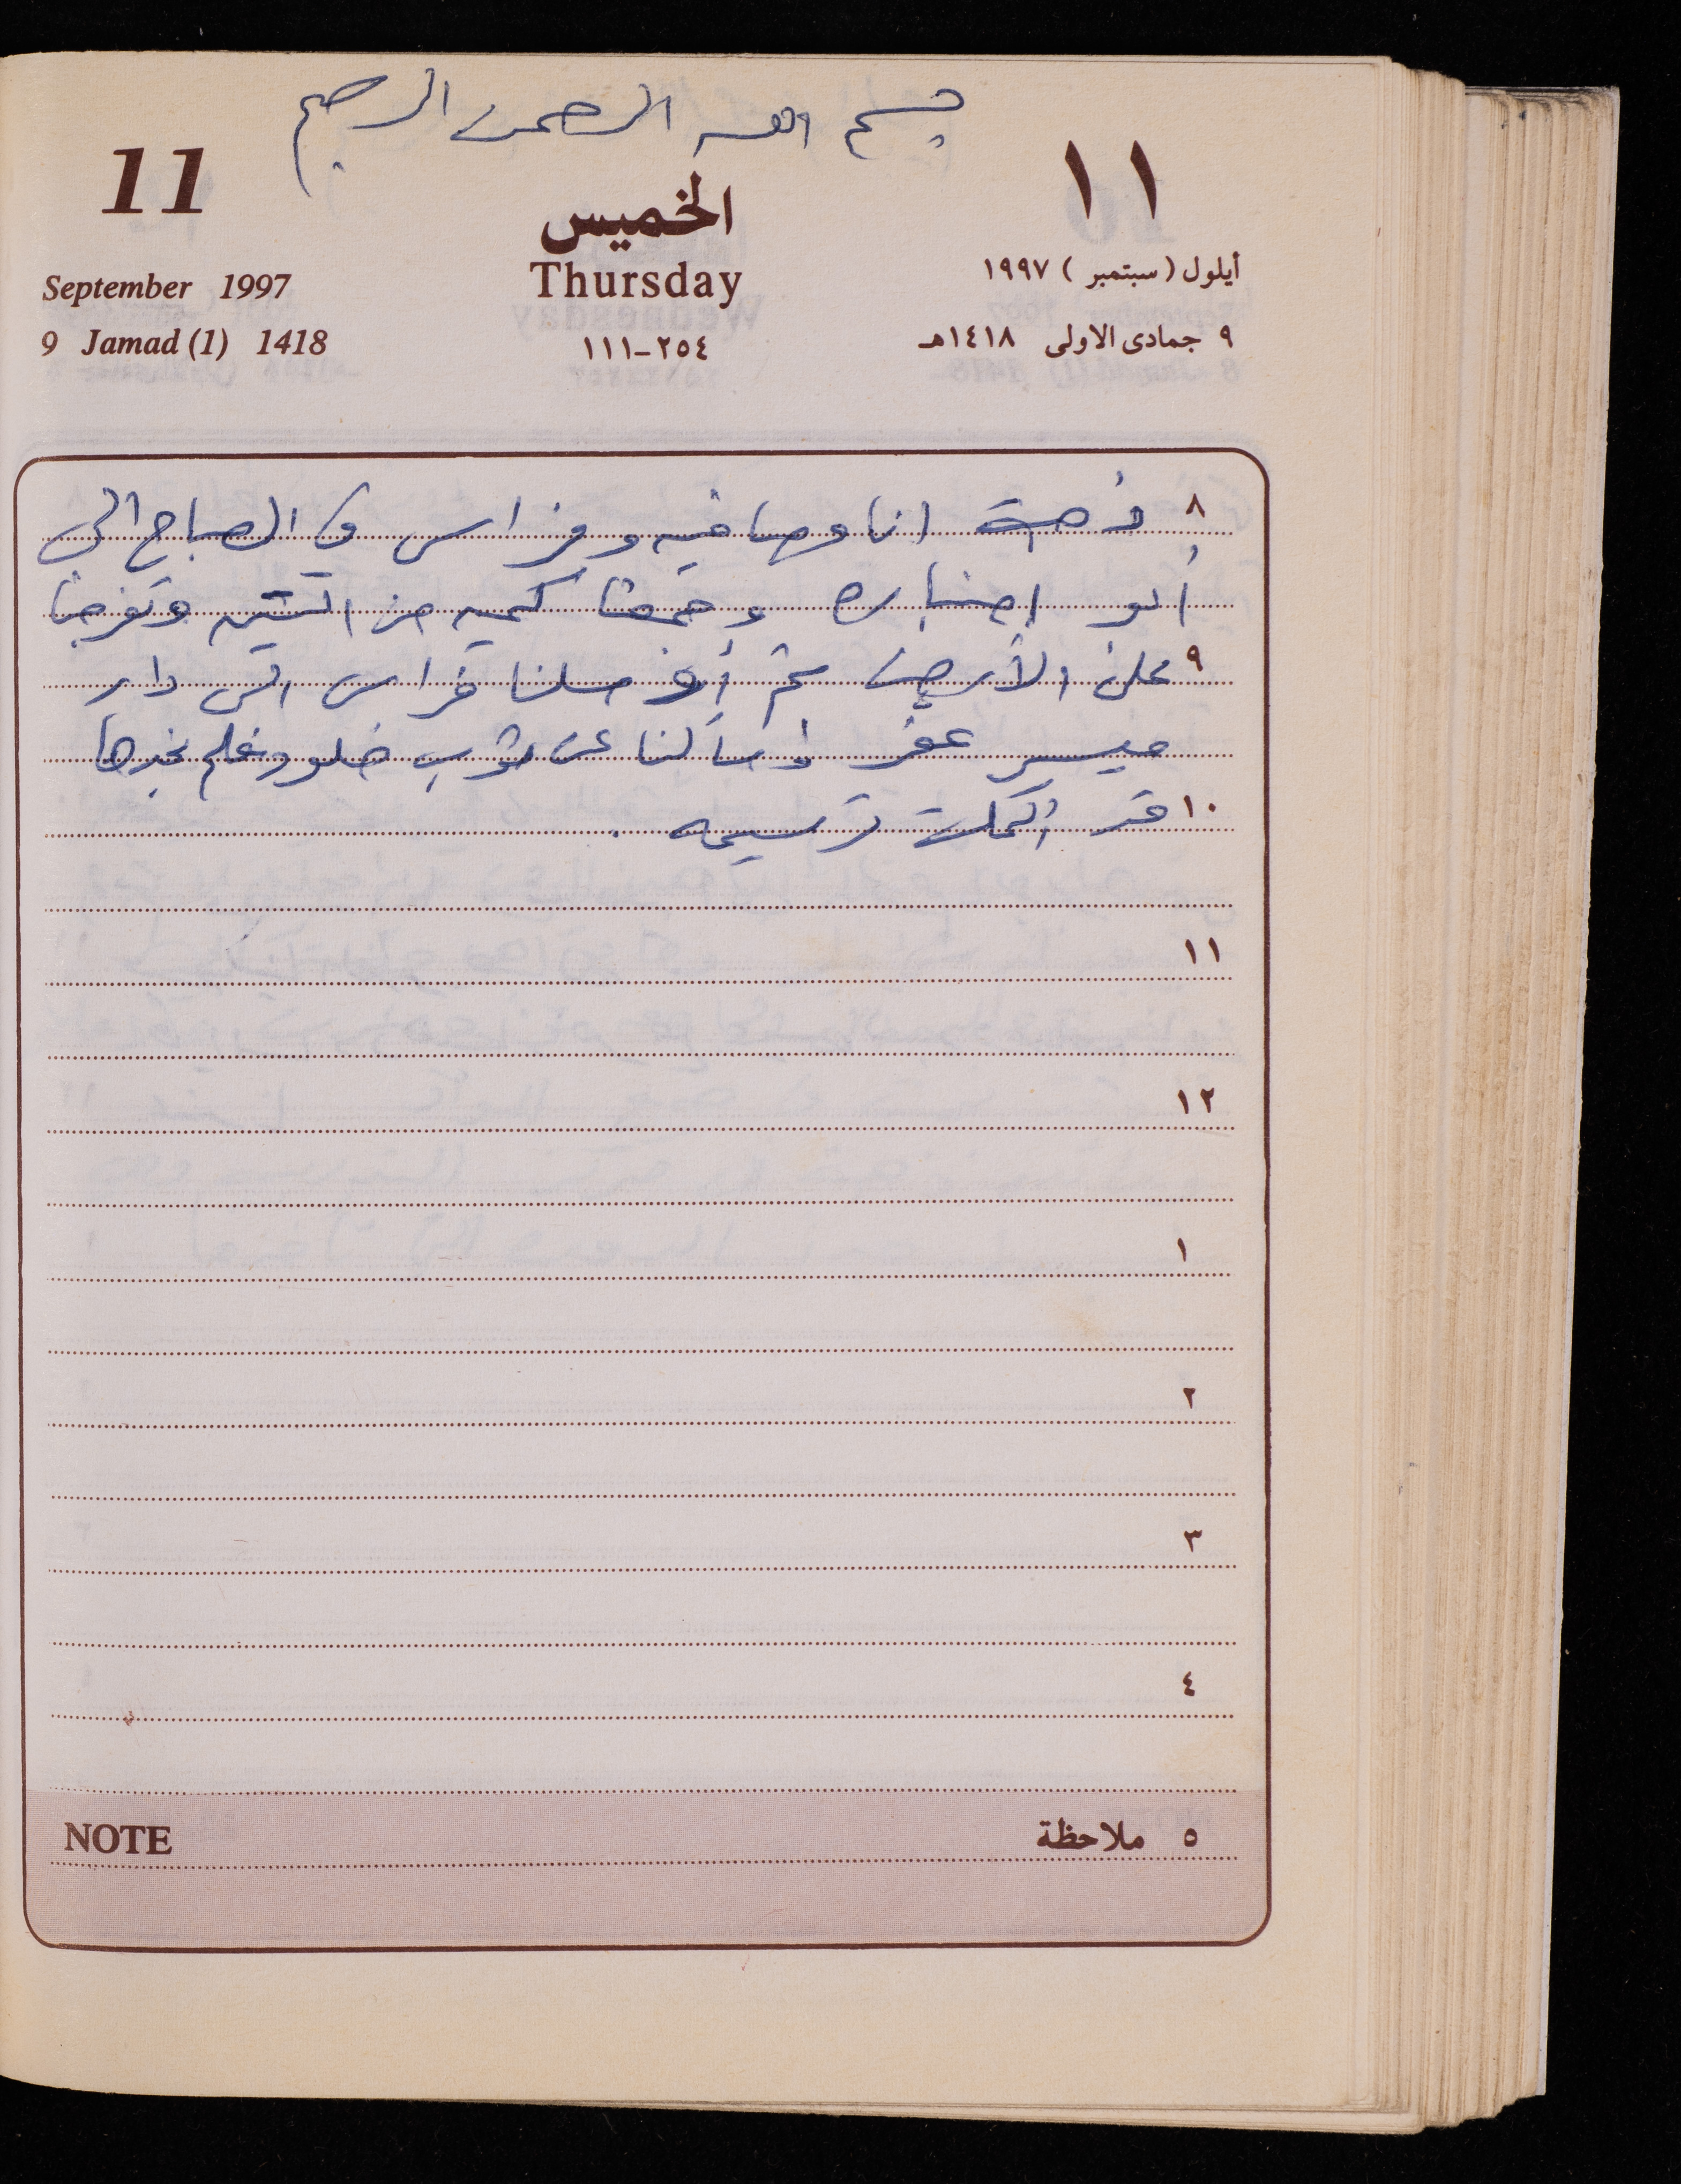 بسم الله الرحمن الرحيم
11
١١
الخميس
Thursday
September 1997
أيلول (سبتمبر) ١٩٩٧
9 Jamad (1) 1418
٢٥٤-١١١
٩ جمادى الاولى ١٤١٨هـ
٨ ذهبت انا وصافيه وفراس في الصباح الى
أبو اخباره وجمعنا كميه من التين وتفرجنا
٩ على الأرض ثم أوصلنا فراس الى دار
ميسر لنسألنا عن ثوب خلود فلم نجدها
١٠ قد أكملت ترسيمه .
١١
١٢
١
٢
٣
٤
NOTE
٥ ملاحظة